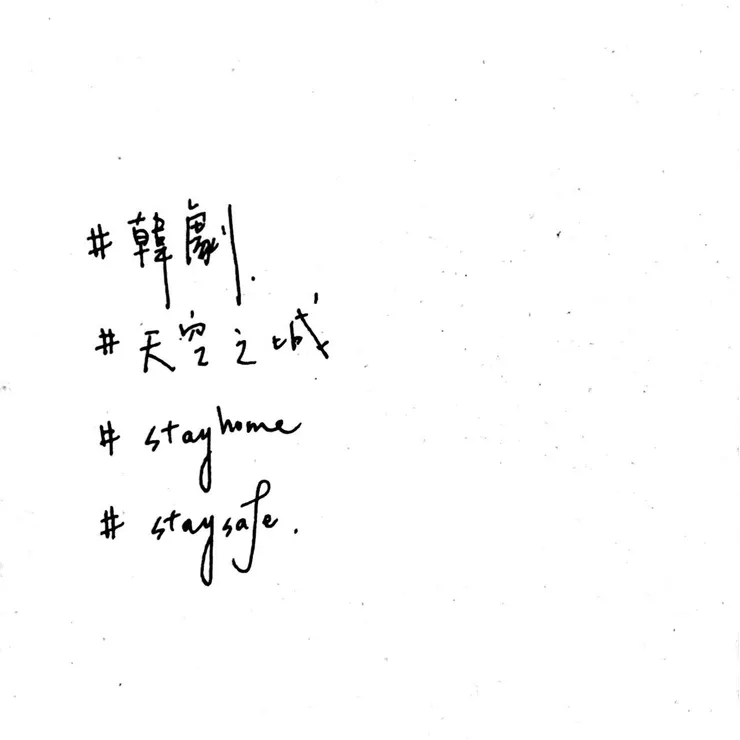 #韓劇.
#天空之城
#stayhome
#staysafe.